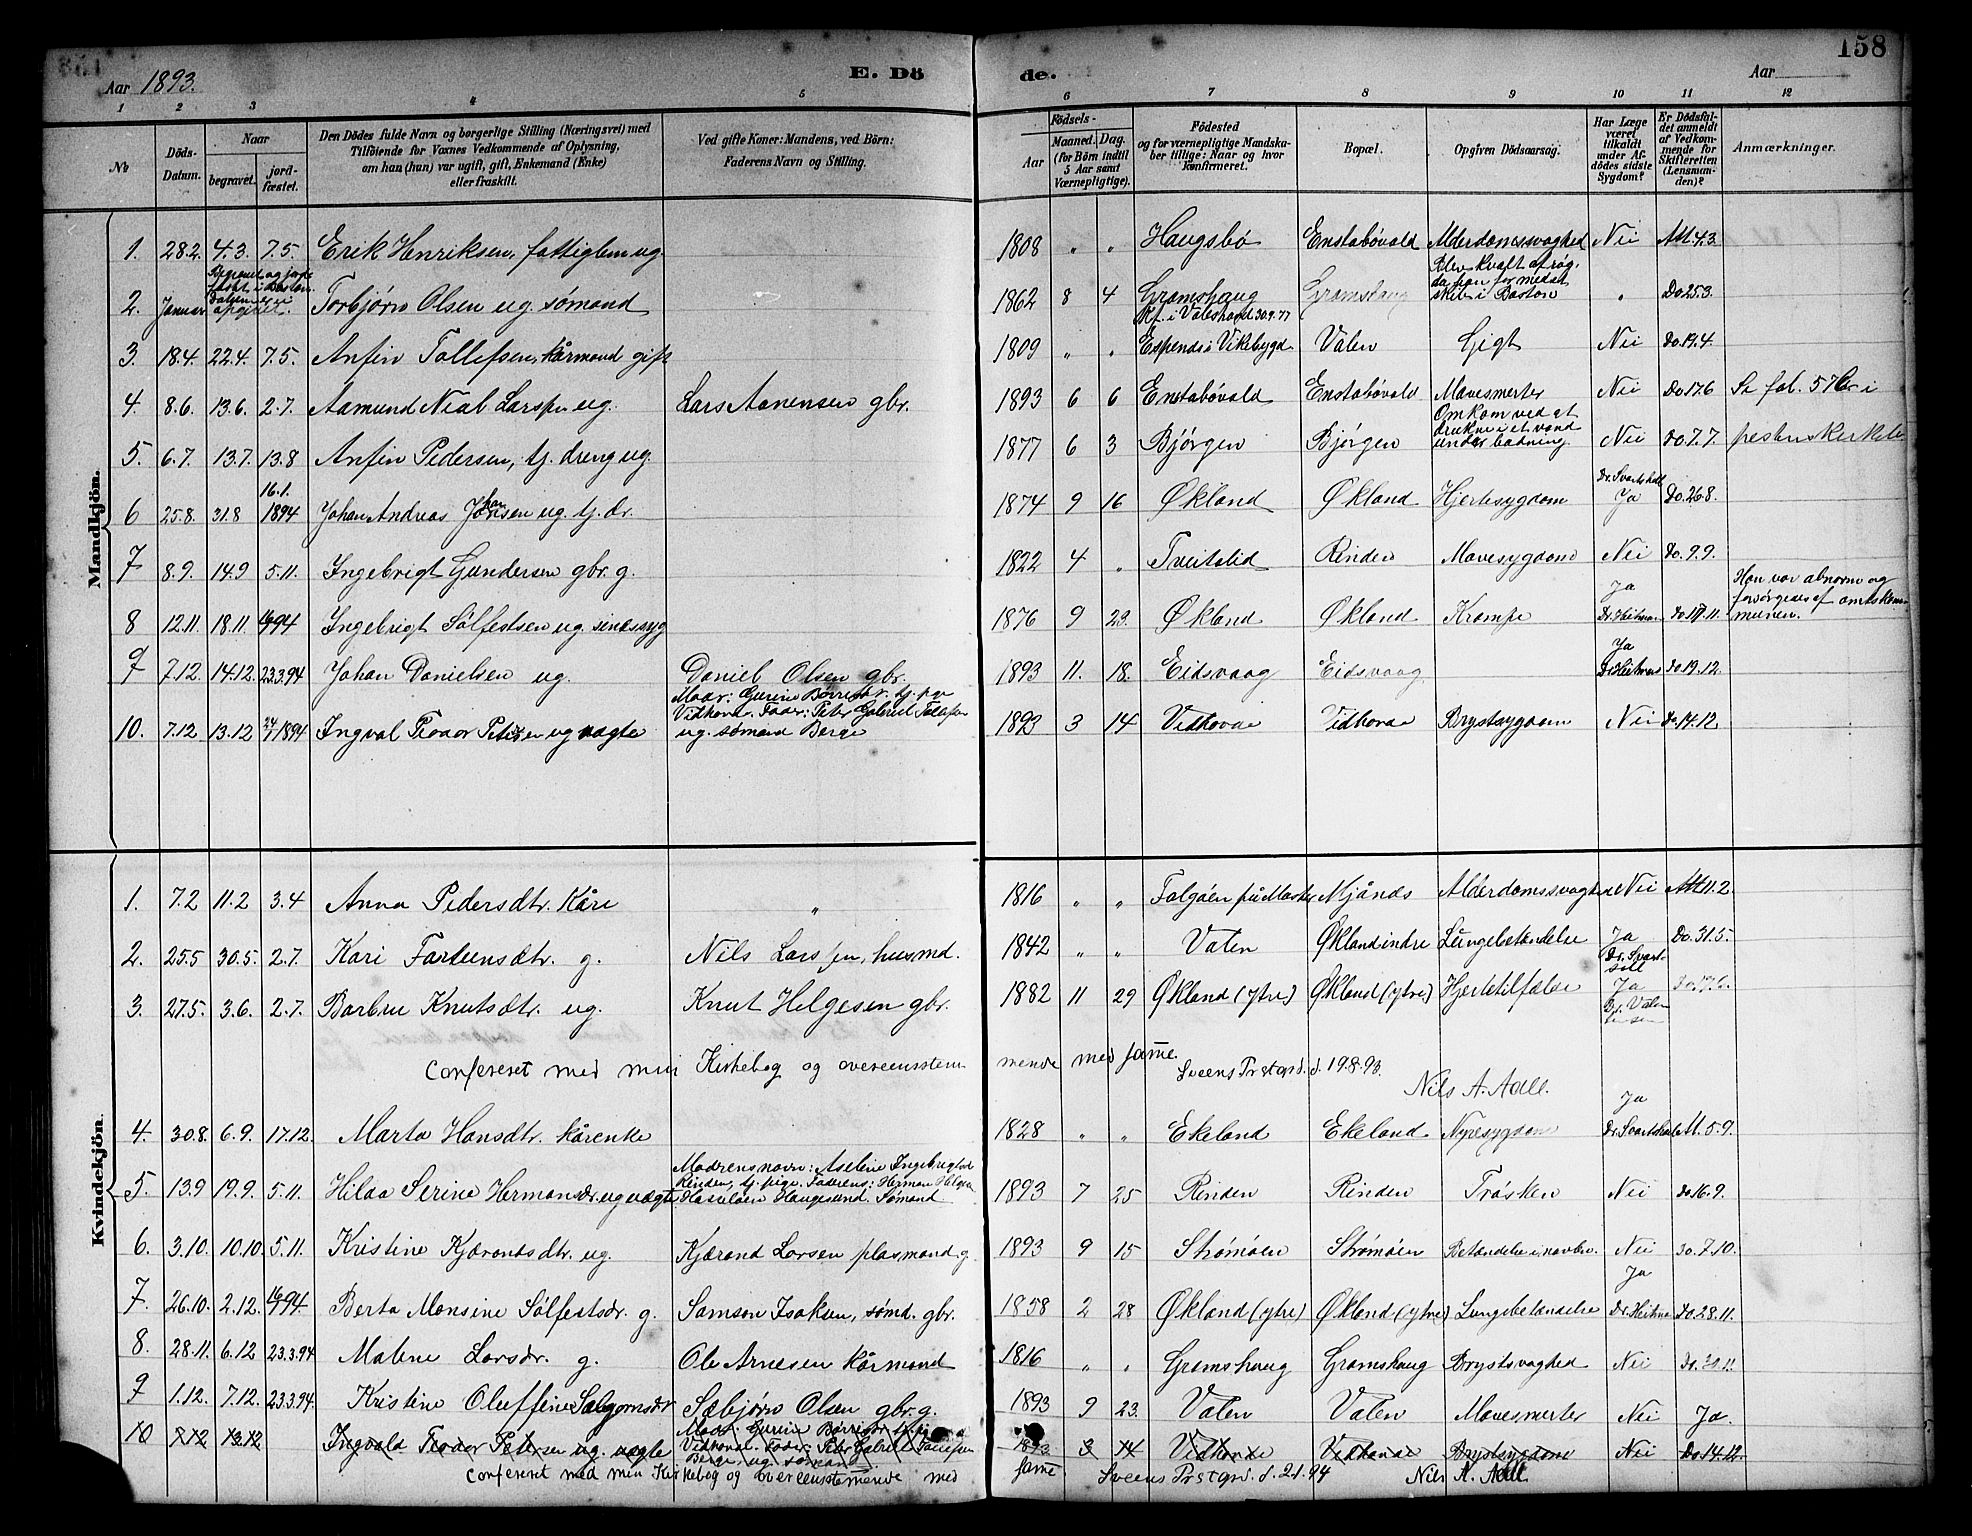 Aar 1893.
E. Dö
de.
Aar
158
1 2 3 4 5 6 7 8 9 10 11 12
No
Döds-Datum.
Naar
begravet.
jord-fæstet.
Den Dödes fulde Navn og borgerlige Stilling (Næringsvei) med
Tilföiende for Voxnes Vedkommende af Oplysning,
om han (hun) var ugift, gift, Enkemand (Enke)
eller fraskilt.
Ved gifte Koner: Mandens, ved Börn:
Faderens Navn og Stilling.
Födsels-
Aar
Maaned. Dag.
(for Börn indtil
5 Aar samt
Værnepligtige).
Födested
og for værnepligtige Mandska-
ber tillige: Naar og hvor
konfirmeret.
Bopæl.
Opgiven Dödsaarsag.
Har Læge
været
tilkaldt
under Af-
dödes sidste
Sygdom?
Er Dödsfal-
det anmeldt
af Vedkom-
mende for
Skifteretten
(Lensman-
den)?
Anmærkninger.
Mandkjön.
1. 28.2. 4.3. 7.5. Erik Henriksen, fattiglem ug. 1808 " " Haugsbø Enstabøvald Alderdomssvaghed Nei Att 4.3.
2. Januar Begravet og jordfæstet i Boston. Datumer ei opgivet. Torbjørn Olsen ug. sømand 1862 8 4 Gramshaug Kf. i Valestrand 30.9.77 Gramshaug Blev kvalt af røg, da han for med et skib i Boston " Do 25.3.
3. 18.4. 22.4. 7.5. Anfin Tollefsen, kårmand gift 1809 " " Espenes i Vikebygd Valen Gigt Nei Do. 19.4.
4. 8.6. 13.6. 2.7. Aamund Nial Larssen ug. Lars Aanensen gbr. 1893 6 6 Enstabøvald Enstabøvald Mavesmerter Nei Do 17.6 Se fol. 57
5. 6.7. 13.7. 13.8 Anfin Pedersen, tj. dreng ug. 1877 6 3 Bjørgen Bjørgen Omkom ved at drukne i et vand under badning. Nei Do. 7.7.
6 25.8. 31.8 16.1. 1894 Johan Andreas Johansen ug. tj. dr. 1874 9 16 Økland Økland Hjertesygdom Dr. Svartsholl Ja Do. 26.8.
7 8.9. 14.9 5.11. Ingebrigt Gundersen gbr. g. 1822 4 " Tveitalid Rinden Mavesygdom Nei Do. 9.9.
8 12.11. 18.11. 16/1 94 Ingebrigt Sølfestsen ug. sindssyg 1876 9 23. Økland Økland Krampe Ja Dr. Heitman Do. 17.11. Han var abnorm og forsørgedes af amtskommunen.
9 7.12. 14.12. 23.3.94 Johan Danielsen ug. Daniel Olsen gbr. 1893 11. 18. Eidsvaag Eidsvaag Ja Dr. Heitman Do 19.12.
10. 7.12 13.12 24/1 1894 Ingval Teodor Petersen ug uægte Moder: Gurine Børresdr. tj. pge Vidhovda. Fader: Peter Gabriel Tollefsen ug. sømand Berge 1893 3 14 Vidhovde Vidhovde Brystsygdom Nei Do. 14.12.
Kvindekjön.
1. 7.2 11.2 3.4 Anna Pedersdtr. Kåre " 1816 " " Folgøen på Moster Mjånes Alderdomssvaghed Nei Att 11.2.
2. 25.5 30.5. 2.7. Kari Farteinsdtr. g. Nils Larssen, husmd. 1842 " " Valen Økland indre Lungebetændelse Ja Dr. Svartsoll Do. 31.5.
3. 27.5. 3.6. 2.7. Barbru Knutsdtr. ug. Knut Helgesen gbr. 1882 11 29 Økland (ytre) Økland (ytre) Hjertetilfælde Ja Dr. Valentinsen Do. 17.6.
Confereret med min Kirkebog og overeensstemmende med samme. Sveens Prstgrd. d. 19.8.93. Nils A. Aall.
4. 30.8. 6.9. 17.12. Marta Hansdtr. kårenke 1828 " " Ekeland Ekeland Nyresygdom Ja Dr. Svartsholl Att. 5.9.
5. 13.9 19.9. 5.11. Hilda Serine Hermansdr. ug uægte Modrens navn: Aseline Ingebrigtsd Rinden, tj. pige. Faderens: Herman Helgesen Hasseløen Haugesund. Sømand 1893 7 25 Rinden Rinden Trøsken Nei Do 16.9.
6. 3.10. 10.10. 5.11. Kristine Kjærandsdtr. ug. Kjærand Larsen plasmand g. 1893 9 15 Strømøen Strømøen Betændelse i navlen. Nei Do. 7.10.
7. 26.10. 2.12. 16/1 94. Berta Monsine Sølfestsdr. g. Samson Isaksen, sømd. gbr. 1858 2 28 Økland (ytre) Økland (ytre) Lungebetændelse Ja Dr. Heitman Do. 28.11.
8. 28.11. 6.12 23.3.94 Malene Larsdr. g. Ole Arnesen kårmand 1816 " " Gramshaug Gramshaug Brystsvaghed Nei Do. 30.11.
9 1.12. 7.12. 23.3.94. Kristine Oluffine Sæbjørnsdr Sæbjørn Olsen gbr. g. 1893 9 23. Valen Valen Mavesmerter Nei Ja.
10 7.12 13.12 Ingvald Teodor Petersen ug. uægte Moder: Gurine Børresdr. tj. pige Vidhovda. Fader: Peter Gabriel Tollefsen Berge, ug. sømand 1893 3 14 Vidhovde Vidhovde Brystsygdom Nei Do 14.12.
Confereret med min Kirkebog og overeensstemmende med samme. Sveens Prstgrd. d. 2.1.94 Nils A. Aall